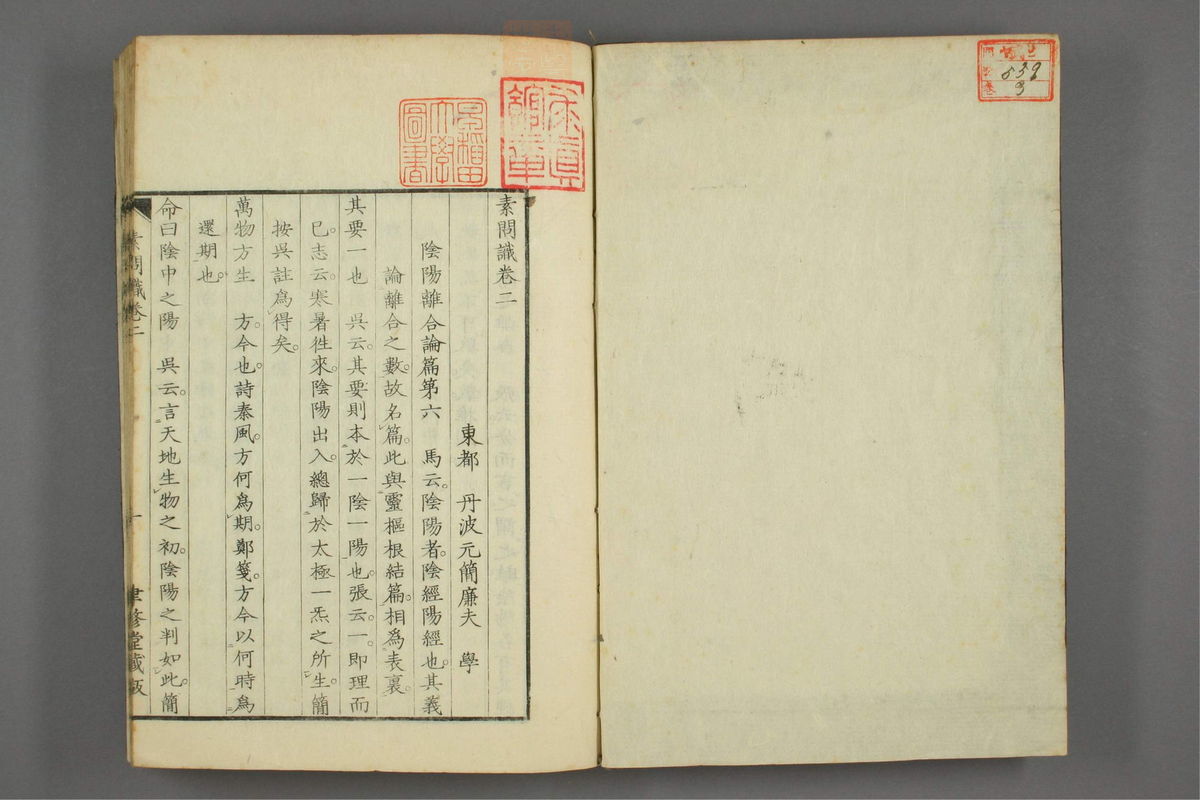 素問識卷二
東都 丹波元簡廉夫 學
陰陽離合論篇第六 馬云。陰陽者。陰經陽經也。其義
論離合之數。故名篇。此與靈樞根結篇。相為表裏。
其要一也 吳云。其要則本於一陰一陽也。張云。一。即理而
已。志云。寒暑徃來。陰陽出入。總歸於太極一炁之所生。簡
按吳註為得矣。
萬物方生 方。今也。詩秦風。方何為期。鄭箋。方今以何時為
還期也。
命曰陰中之陽 吳云。言天地生物之初。陰陽之判如此。簡
素問識卷二
一
聿修堂藏版
早稲田大學圖書
門
號 839
卷 3